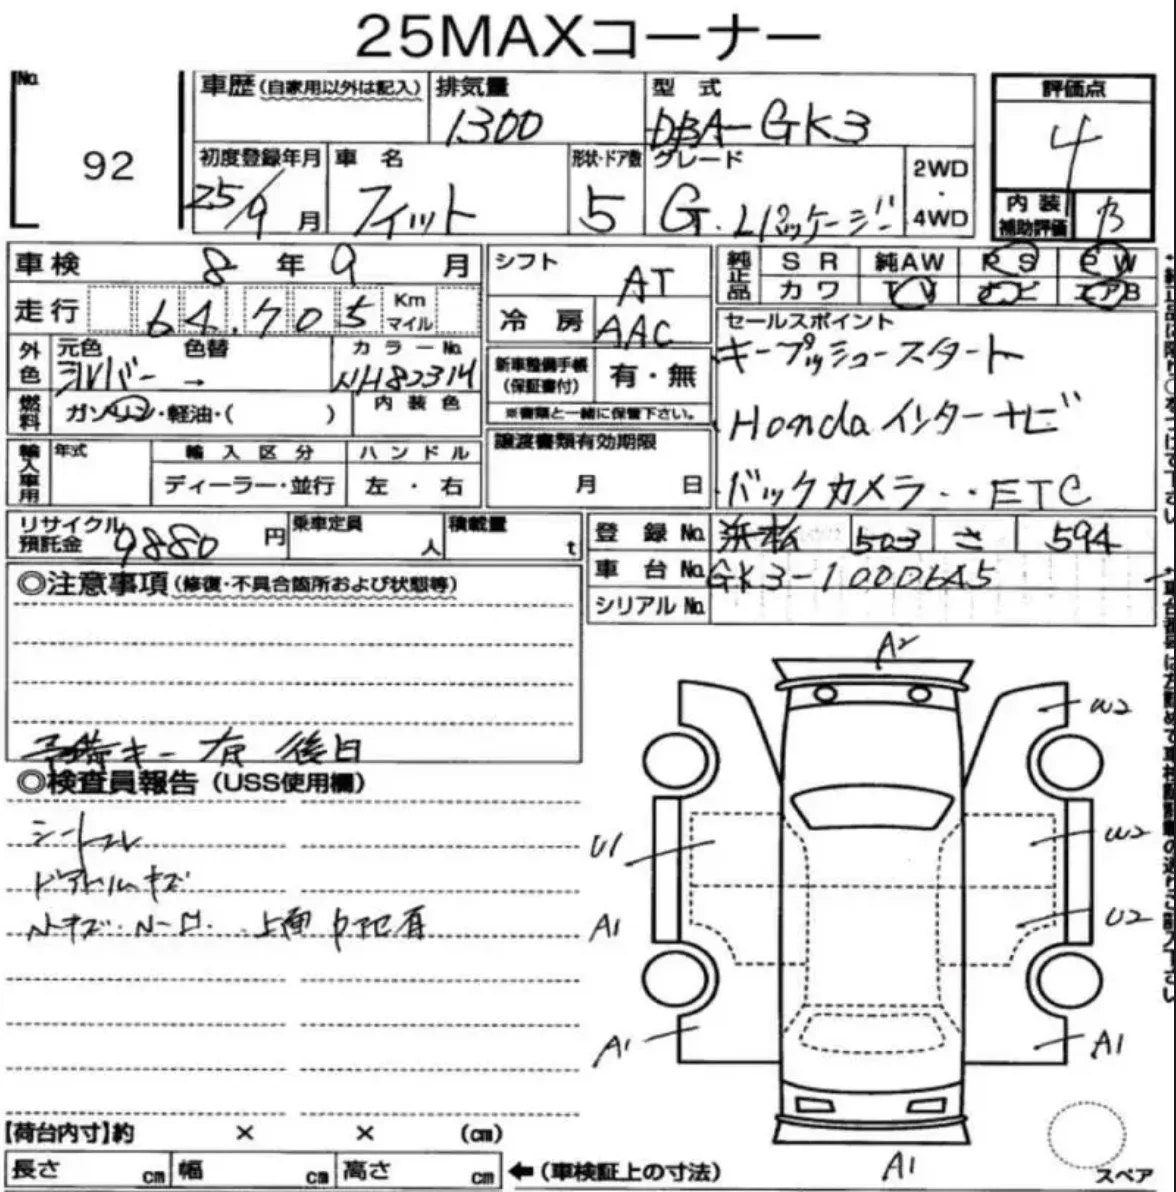 25MAXコーナー
No.
92
車歴(自家用以外は記入)
排気量
1300
型 式
DBA-GK3
評価点
4
初度登録年月
25/9 月
車 名
フィット
形状・ドア数
5
グレード
G.Lパッケージ
2WD
・
4WD
内 装
補助評価
B
車検 8 年 9 月
シフト
AT
純正品
SR 純AW PS PW
カワ TV ナビ エアB
走行 64.705 Km マイル
冷 房
AAC
セールスポイント
キープッシュースタート
Hondaインターナビ
バックカメラ・・ETC
外色
元色 色替
シルバー →
カラーNo.
NH823M
新車整備手帳
(保証書付)
有・無
※書類と一緒に保管下さい。
燃料
ガソリン・軽油・( )
内装色
輸入車用
年式
輸入区分
ディーラー・並行
ハンドル
左 ・ 右
譲渡書類有効期限
月 日
リサイクル
預託金
9880 円
乗車定員
人
積載量
t
登 録 No. 浜松 503 さ 594
車 台 No. GK3-1000645
シリアル No.
◎注意事項(修復・不具合箇所および状態等)
キー 有 後日
◎検査員報告(USS使用欄)
シートコレ
ドアトリムキズ
A2
W2
U1
W2
A1
U2
A1
A1
A1
【荷台内寸】約 × × (cm)
長さ cm 幅 cm 高さ cm ←(車検証上の寸法)
スペア